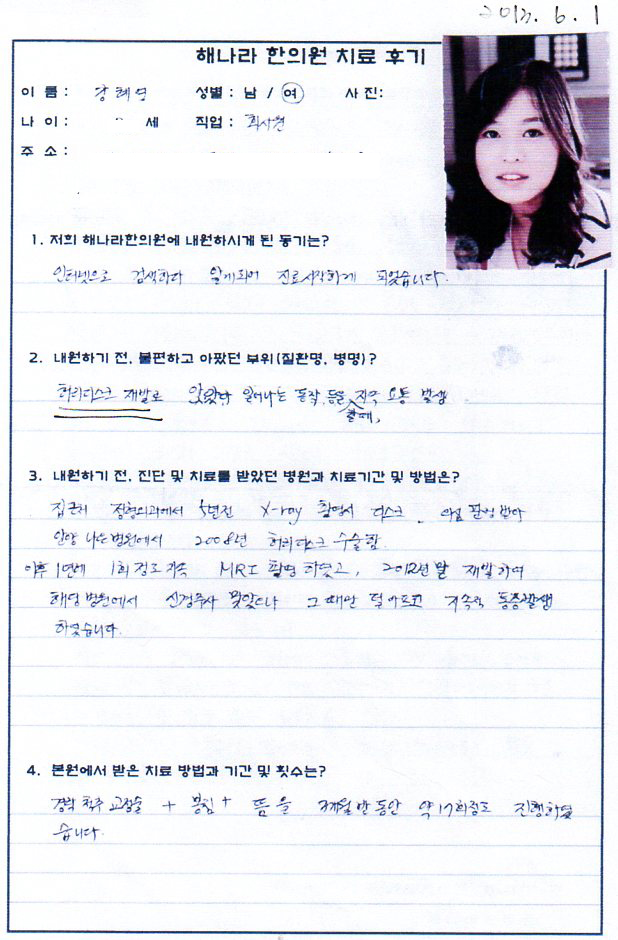 2013. 6. 1
해나라 한의원 치료 후기
이 름 : 강혜영 성별 : 남 / 여 사 진:
나 이 : 세 직업 : 회사원
주 소 :
1. 저희 해나라한의원에 내원하시게 된 동기는?
인터넷으로 검색하다 알게되어 진료시작하게 되었습니다.
2. 내원하기 전, 불편하고 아팠던 부위(질환명, 병명)?
허리디스크 재발로 앉았다 일어나는 동작, 등을 지속 요통 발생
할때,
3. 내원하기 전, 진단 및 치료를 받았던 병원과 치료기간 및 방법은?
집근처 정형외과에서 5년전 X-ray 촬영서 디스크 의심 판정 받아
안양 나은병원에서 2008년 허리디스크 수술함.
이후 1년에 1회 정도 지속 MRI 촬영 하였고, 2012년 말 재발하여
해당 병원에서 신경주사 맞았으나 그 때만 덜 아프고 지속적 통증발생
하였습니다.
4. 본원에서 받은 치료 방법과 기간 및 횟수는?
경락 척추 교정술 + 봉침 + 뜸 을 3개월 반 동안 약 17회정도 진행하였
습니다.